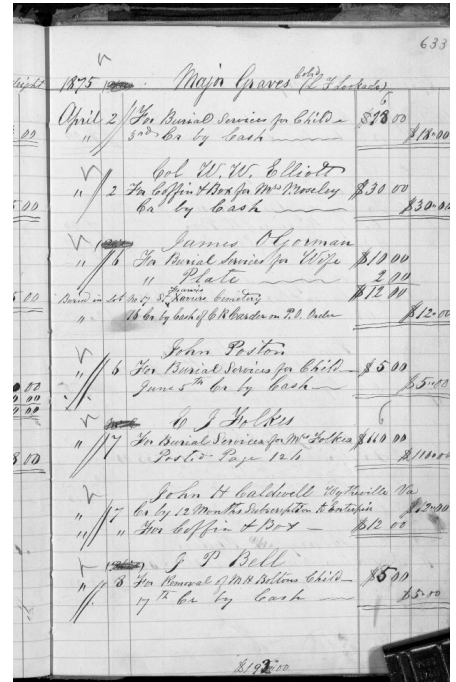 633
1875 Major Graves Cold (C. F. Lockade)
April 2 For Burial Services for Child $18 00
" 3rd Cr by Cash $18=00
Col W. W. Elliott
" 2 For Coffin & Box for Mrs Moseley $30 00
Cr by Cash $30=00
James O'Gorman
" 6 For Burial Services for Wife $10 00
" Plate 2 00
Buried in Lot No 17 St Francis Xaviers Cemetery $12 00
" 16 Cr by Cash of C R Carder on P.O. Order $12=00
John Poston
" 6 For Burial Services for Child $5 00
June 5th Cr by Cash $5=00
E J Folkes
" 7 For Burial Services for Mrs Folkes $160 00
Posted Page 126
John H Caldwell Wytheville Va
" 7 Cr by 12 Months Subscription to Enterprise $12=00
" " For Coffin & Box $12 00
J P Bell
" 8 For Removal of M H Bottoms Child $5 00
17th Cr by Cash $5=00